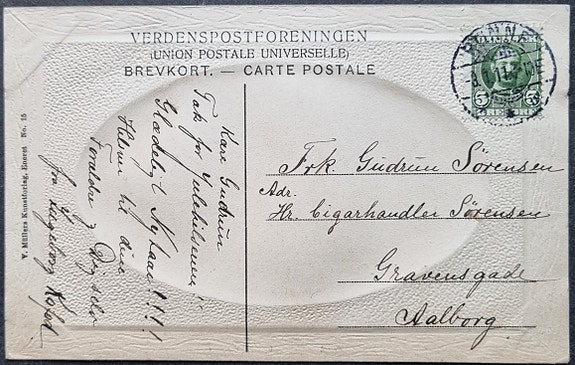 VERDENSPOSTFORENINGEN
(UNION POSTALE UNIVERSELLE)
BREVKORT. — CARTE POSTALE
V. Müllers Kunstforlag, Eneret No. 15
Kære Gudrun
Tak for Julehilsenen!!
Glædeligt Nytaar!!!!
Hilsen til dine
Forældre og Dig selv
fra Ingeborg
Frk. Gudrun Sörensen
Adr.
Hr. Cigarhandler Sörensen
Gravensgade
Aalborg
RØNNE
5 5